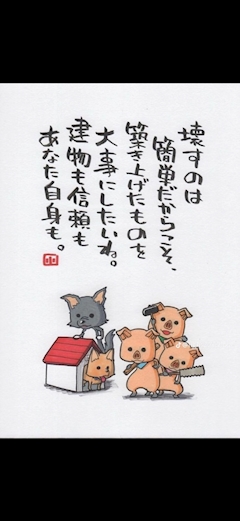 壊すのは
簡単だからこそ、
築き上げたものを
大事にしたいね。
建物も信頼も
あなた自身も。